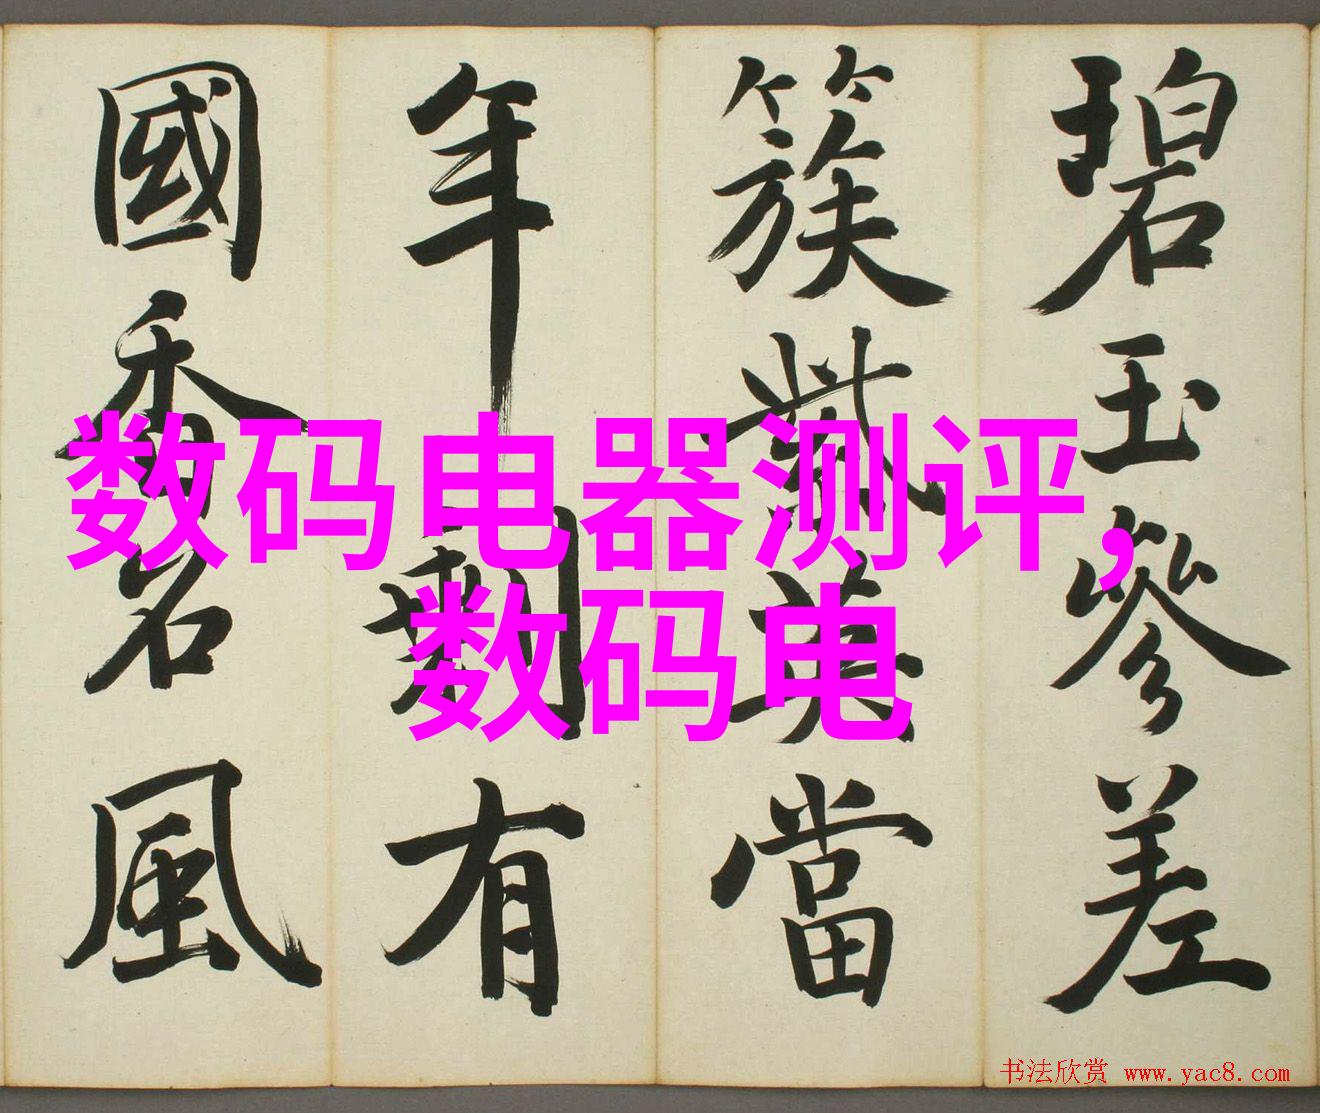 碧玉參差
簇紫英當
年有
國香名風
数码电器测评,
数码电
书法欣赏 www.yac8.com